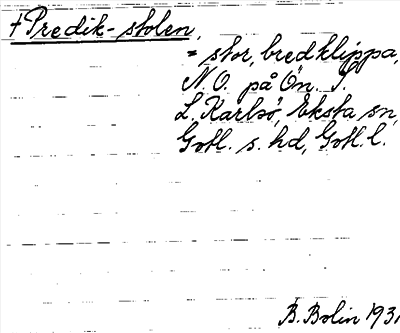 +Predik-stolen,
= stor, bred klippa,
N.O. på Ön. I.
L. Karlsö, Eksta sn,
Gotl. s. hd, Gotl. l.
B. Bolin 1931